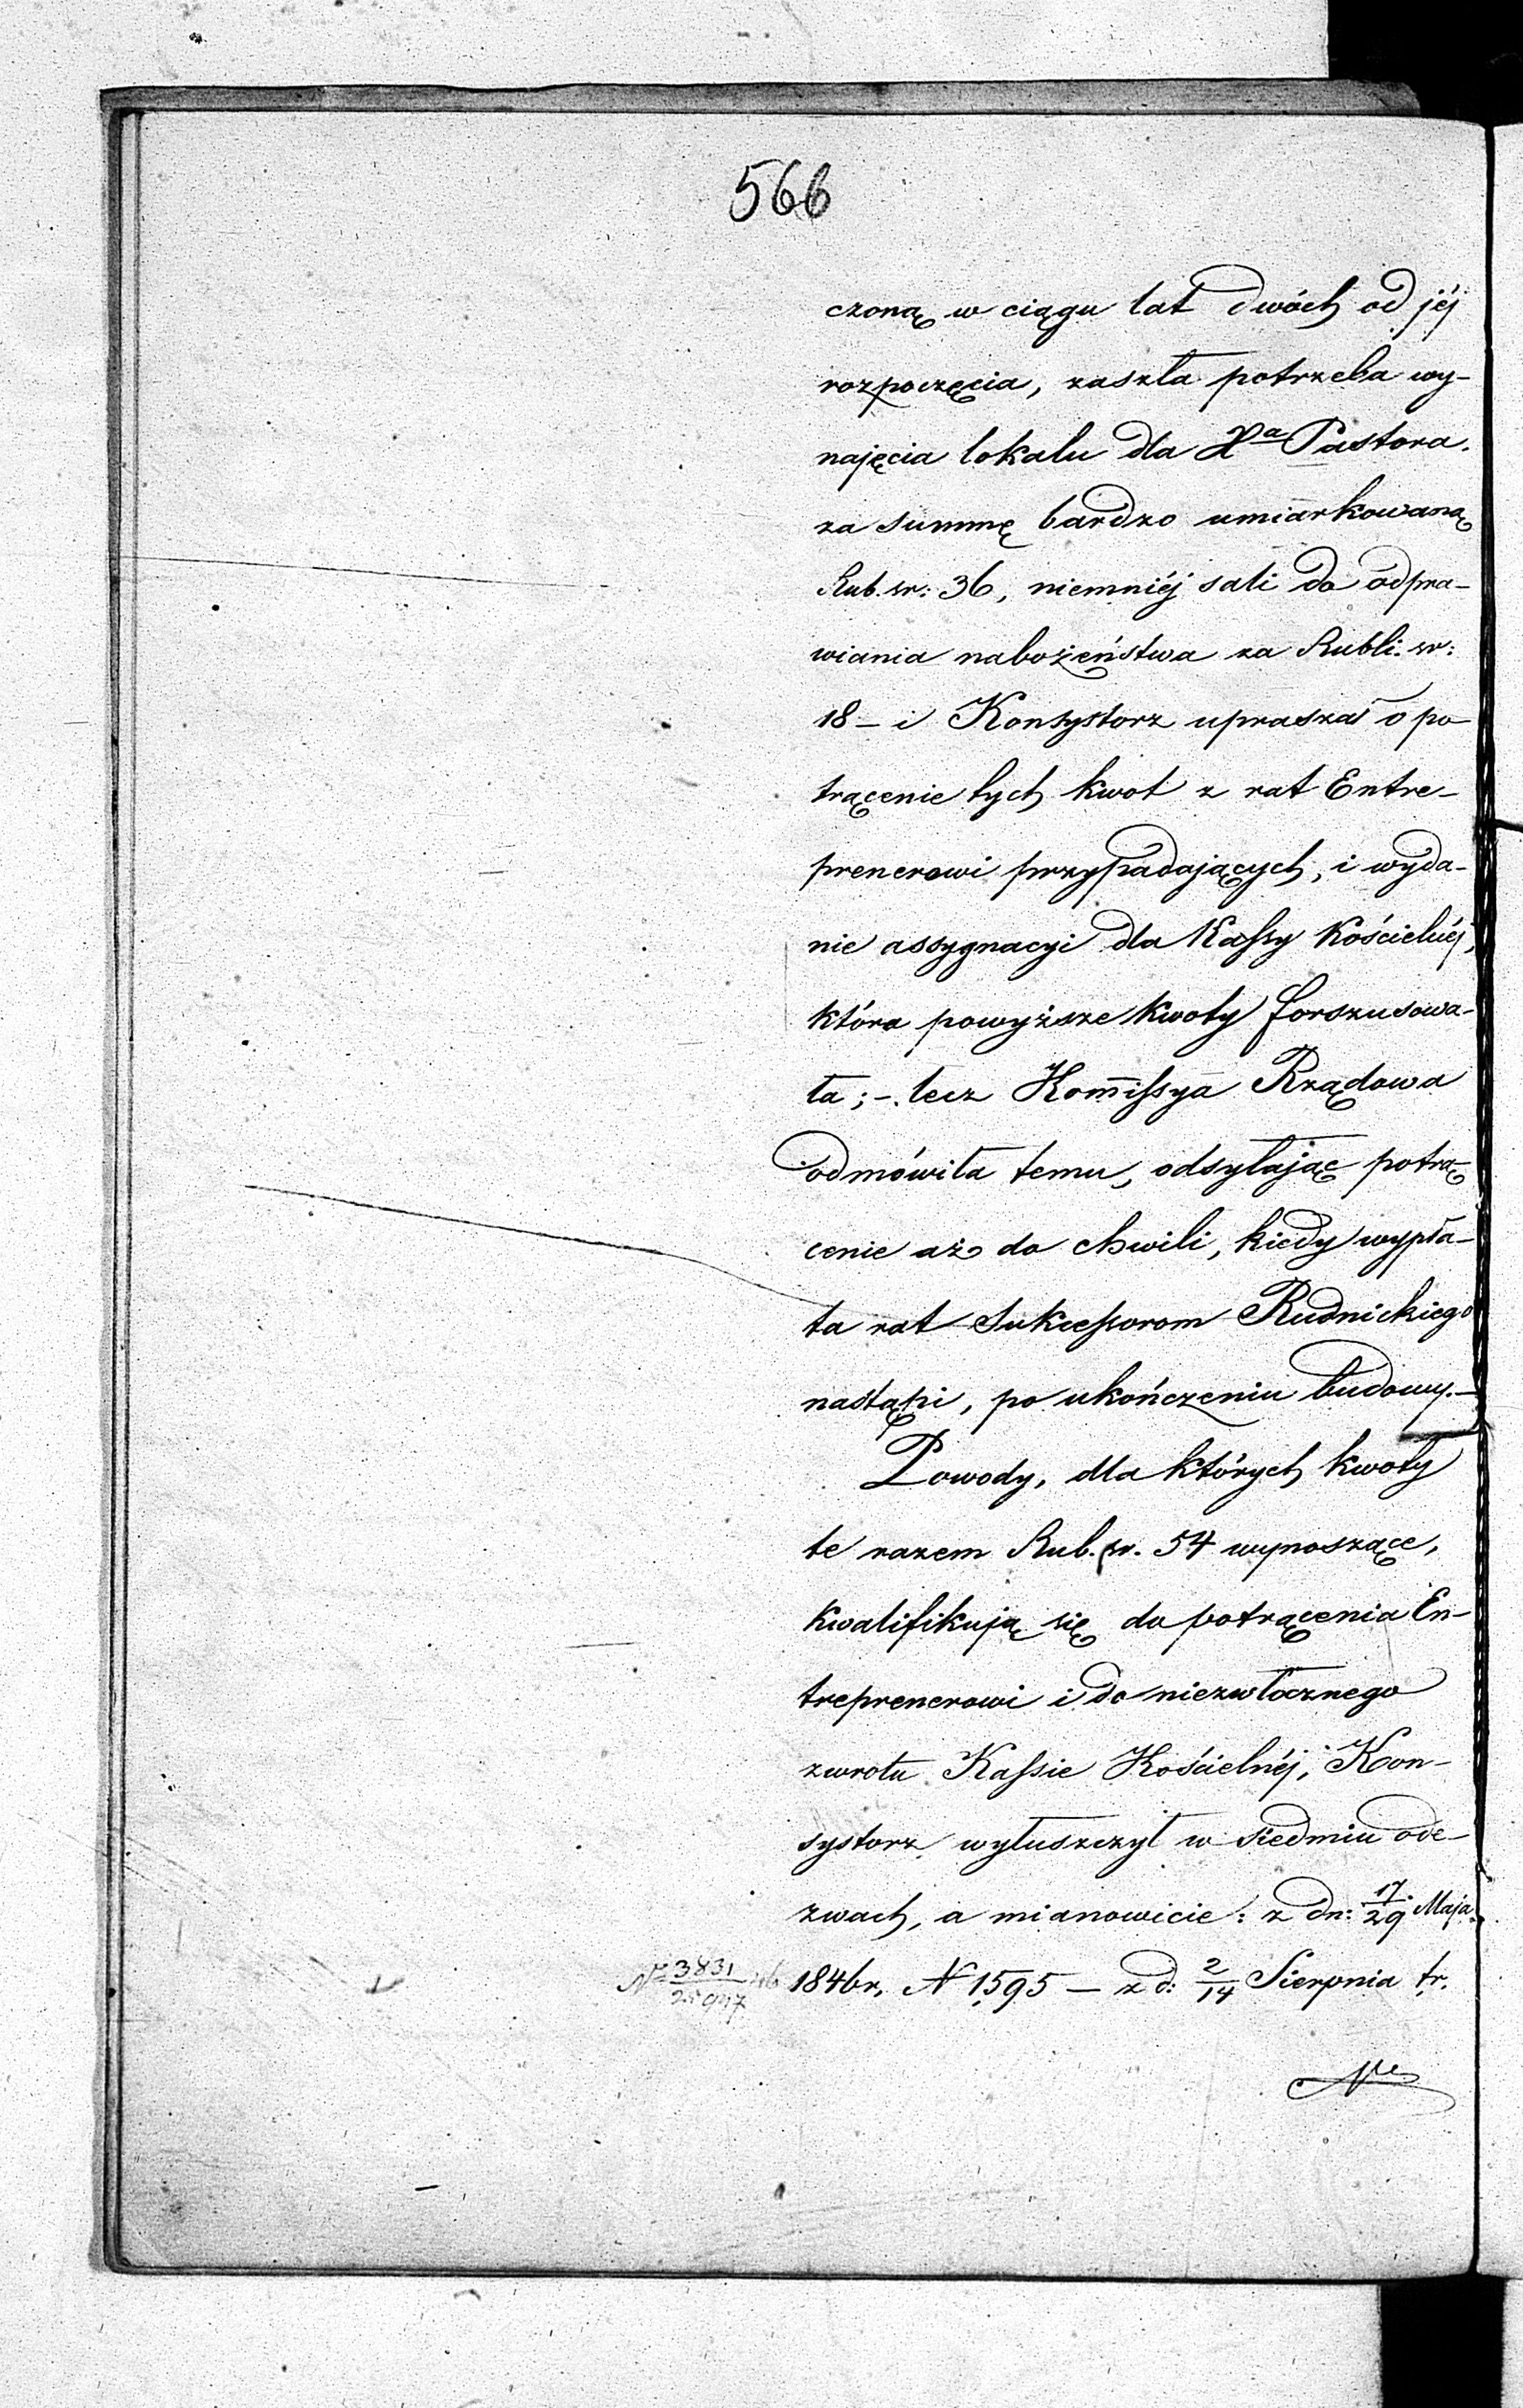 566
czoną w ciągu lat dwóch od jéj
rozpoczęcia, zaszła potrzeba wy-
najęcia lokalu dla Xa Pastora.
za summę bardzo umiarkowaną
Rub. sr: 36, niemniéj sali do odpra-
wiania nabożeństwa za Rubli: sr:
18 - i Konsystorz upraszał o po-
trącenie tych kwot z rat Entre-
prenerowi przypadających, i wyda-
nie assygnacyi dla Kassy Kościelnéj,
która powyższe kwoty forszusowa-
ła; -. lecz Kommissya Rządowa
odmówiła temu, odsyłając potrą-
cenie aż do chwili, kiedy wypła-
ta rat Sukcessorom Rudnickiego
nastąpi, po ukończeniu budowy. -
Powody, dla których kwoty
te razem Rub. sr. 54 wynoszące,
kwalifikują się do potrącenia En-
treprenerowi i do niezwłocznego
zwrotu Kassie Kościelnéj, Kon-
systorz wyłuszczył w siedmiu ode-
zwach, a mianowicie: z dn: 17/29 Maja
No 3831/25947 46 1846 r. N 1595 - z d: 2/14 Sierpnia tr.
Nr